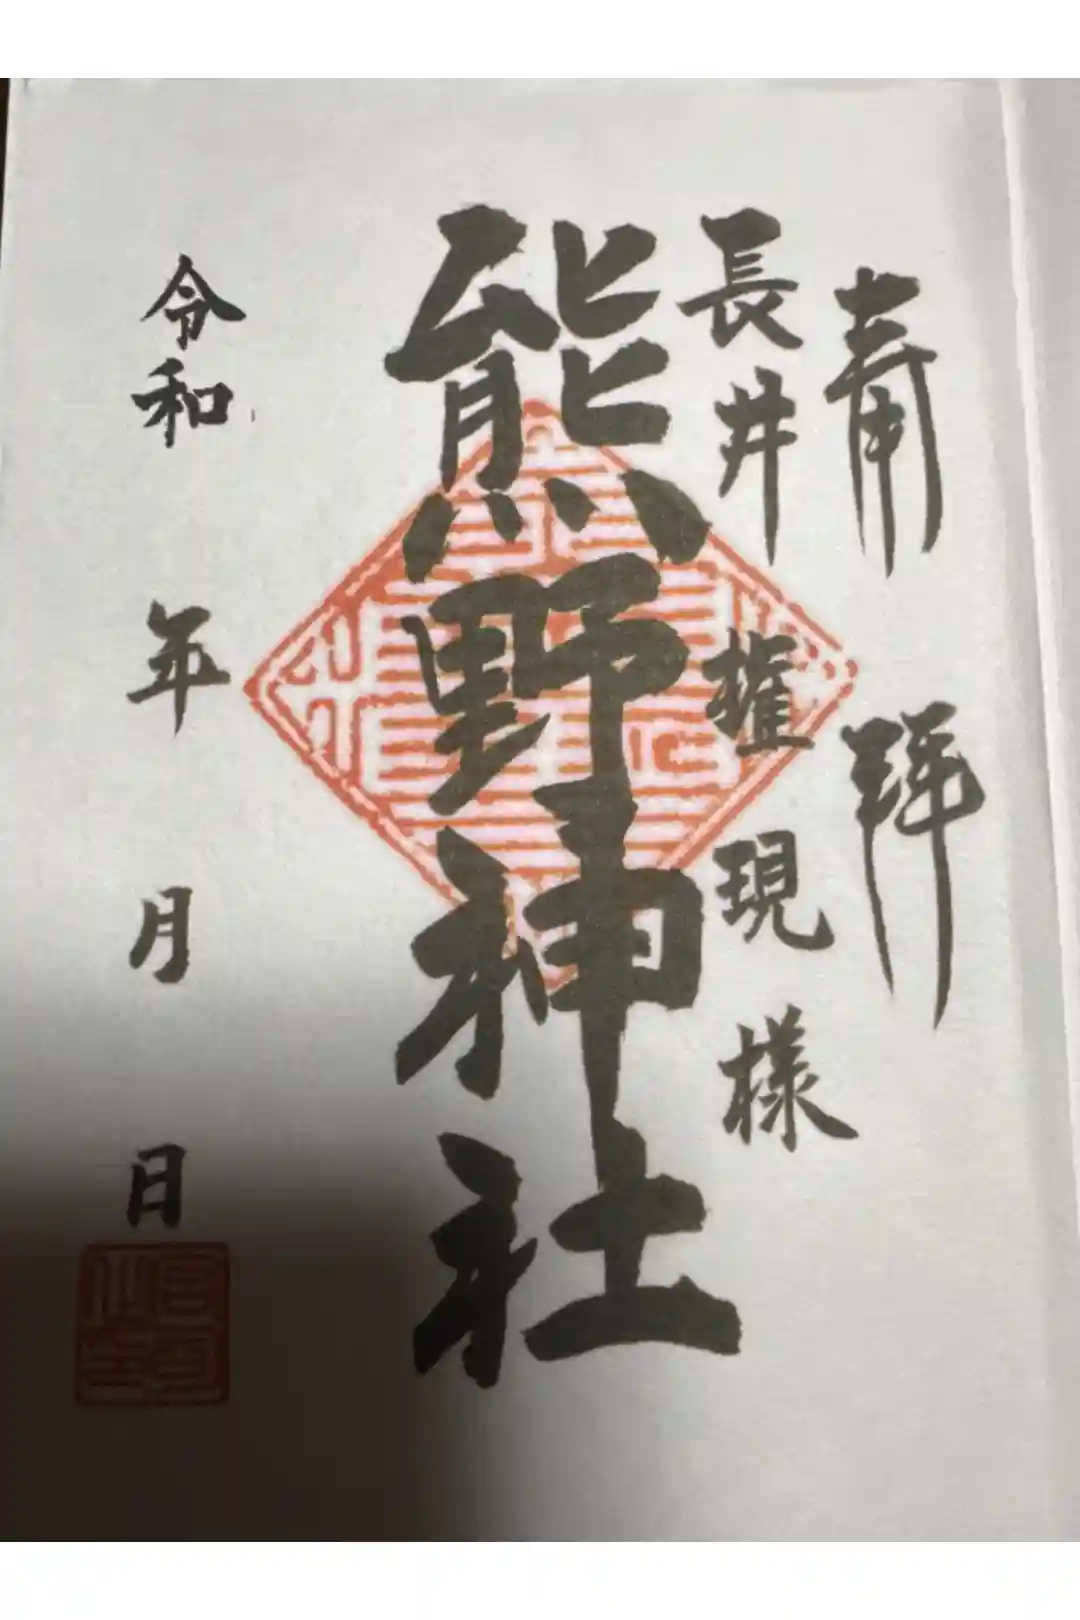 奉拝
長井権現様
熊野神社
令和 年 月 日